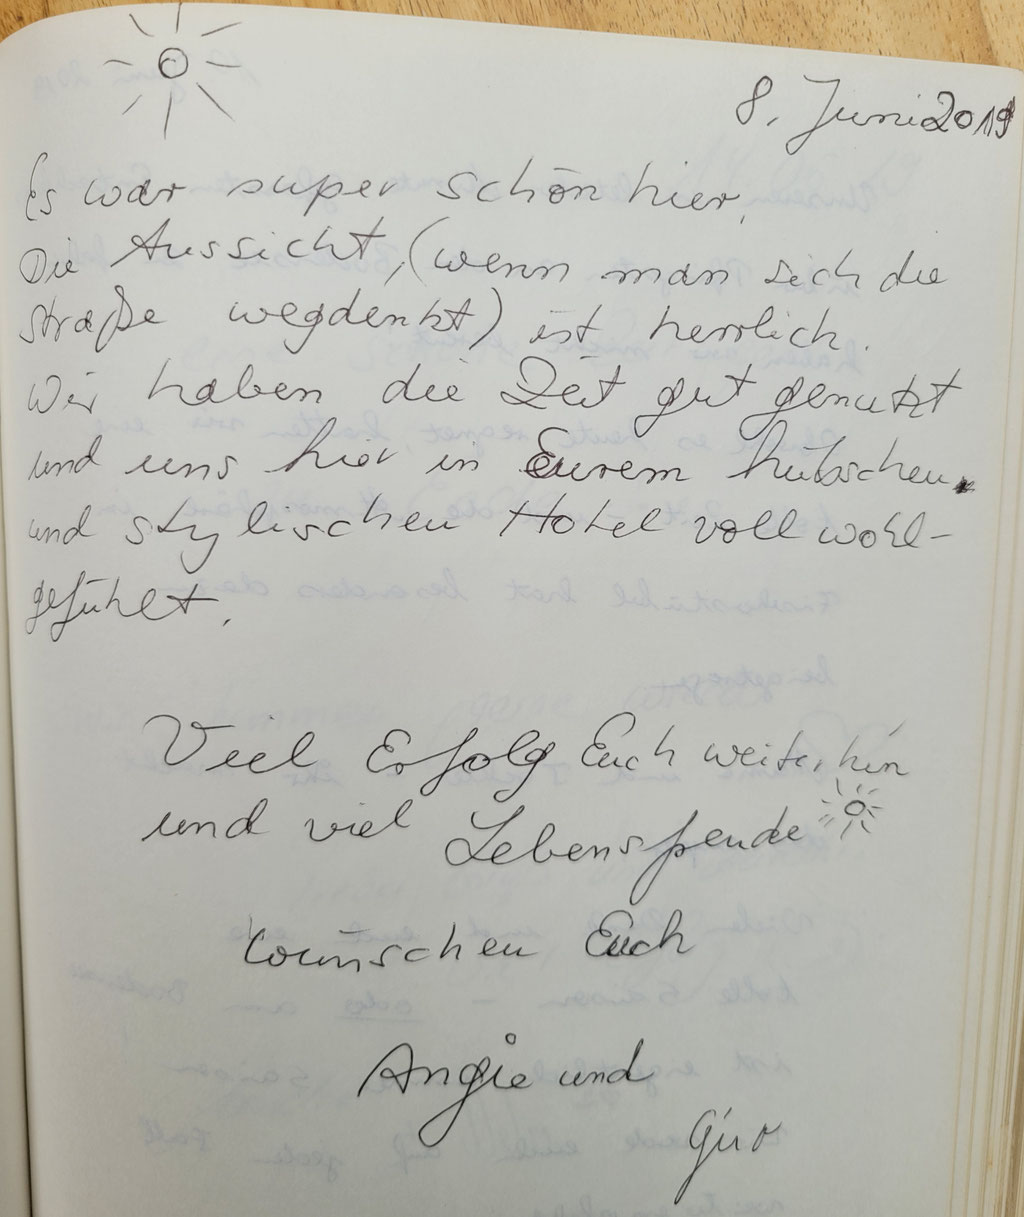 8. Juni 2019
Es war super schön hier.
Die Aussicht, (wenn man sich die
Straße wegdenkt) ist herrlich.
Wir haben die Zeit gut genutzt
und uns hier in Eurem hübschen
und stylischen Hotel voll wohl-
gefühlt.
Viel Erfolg Euch weiterhin
und viel
wünschen Euch
Angie und